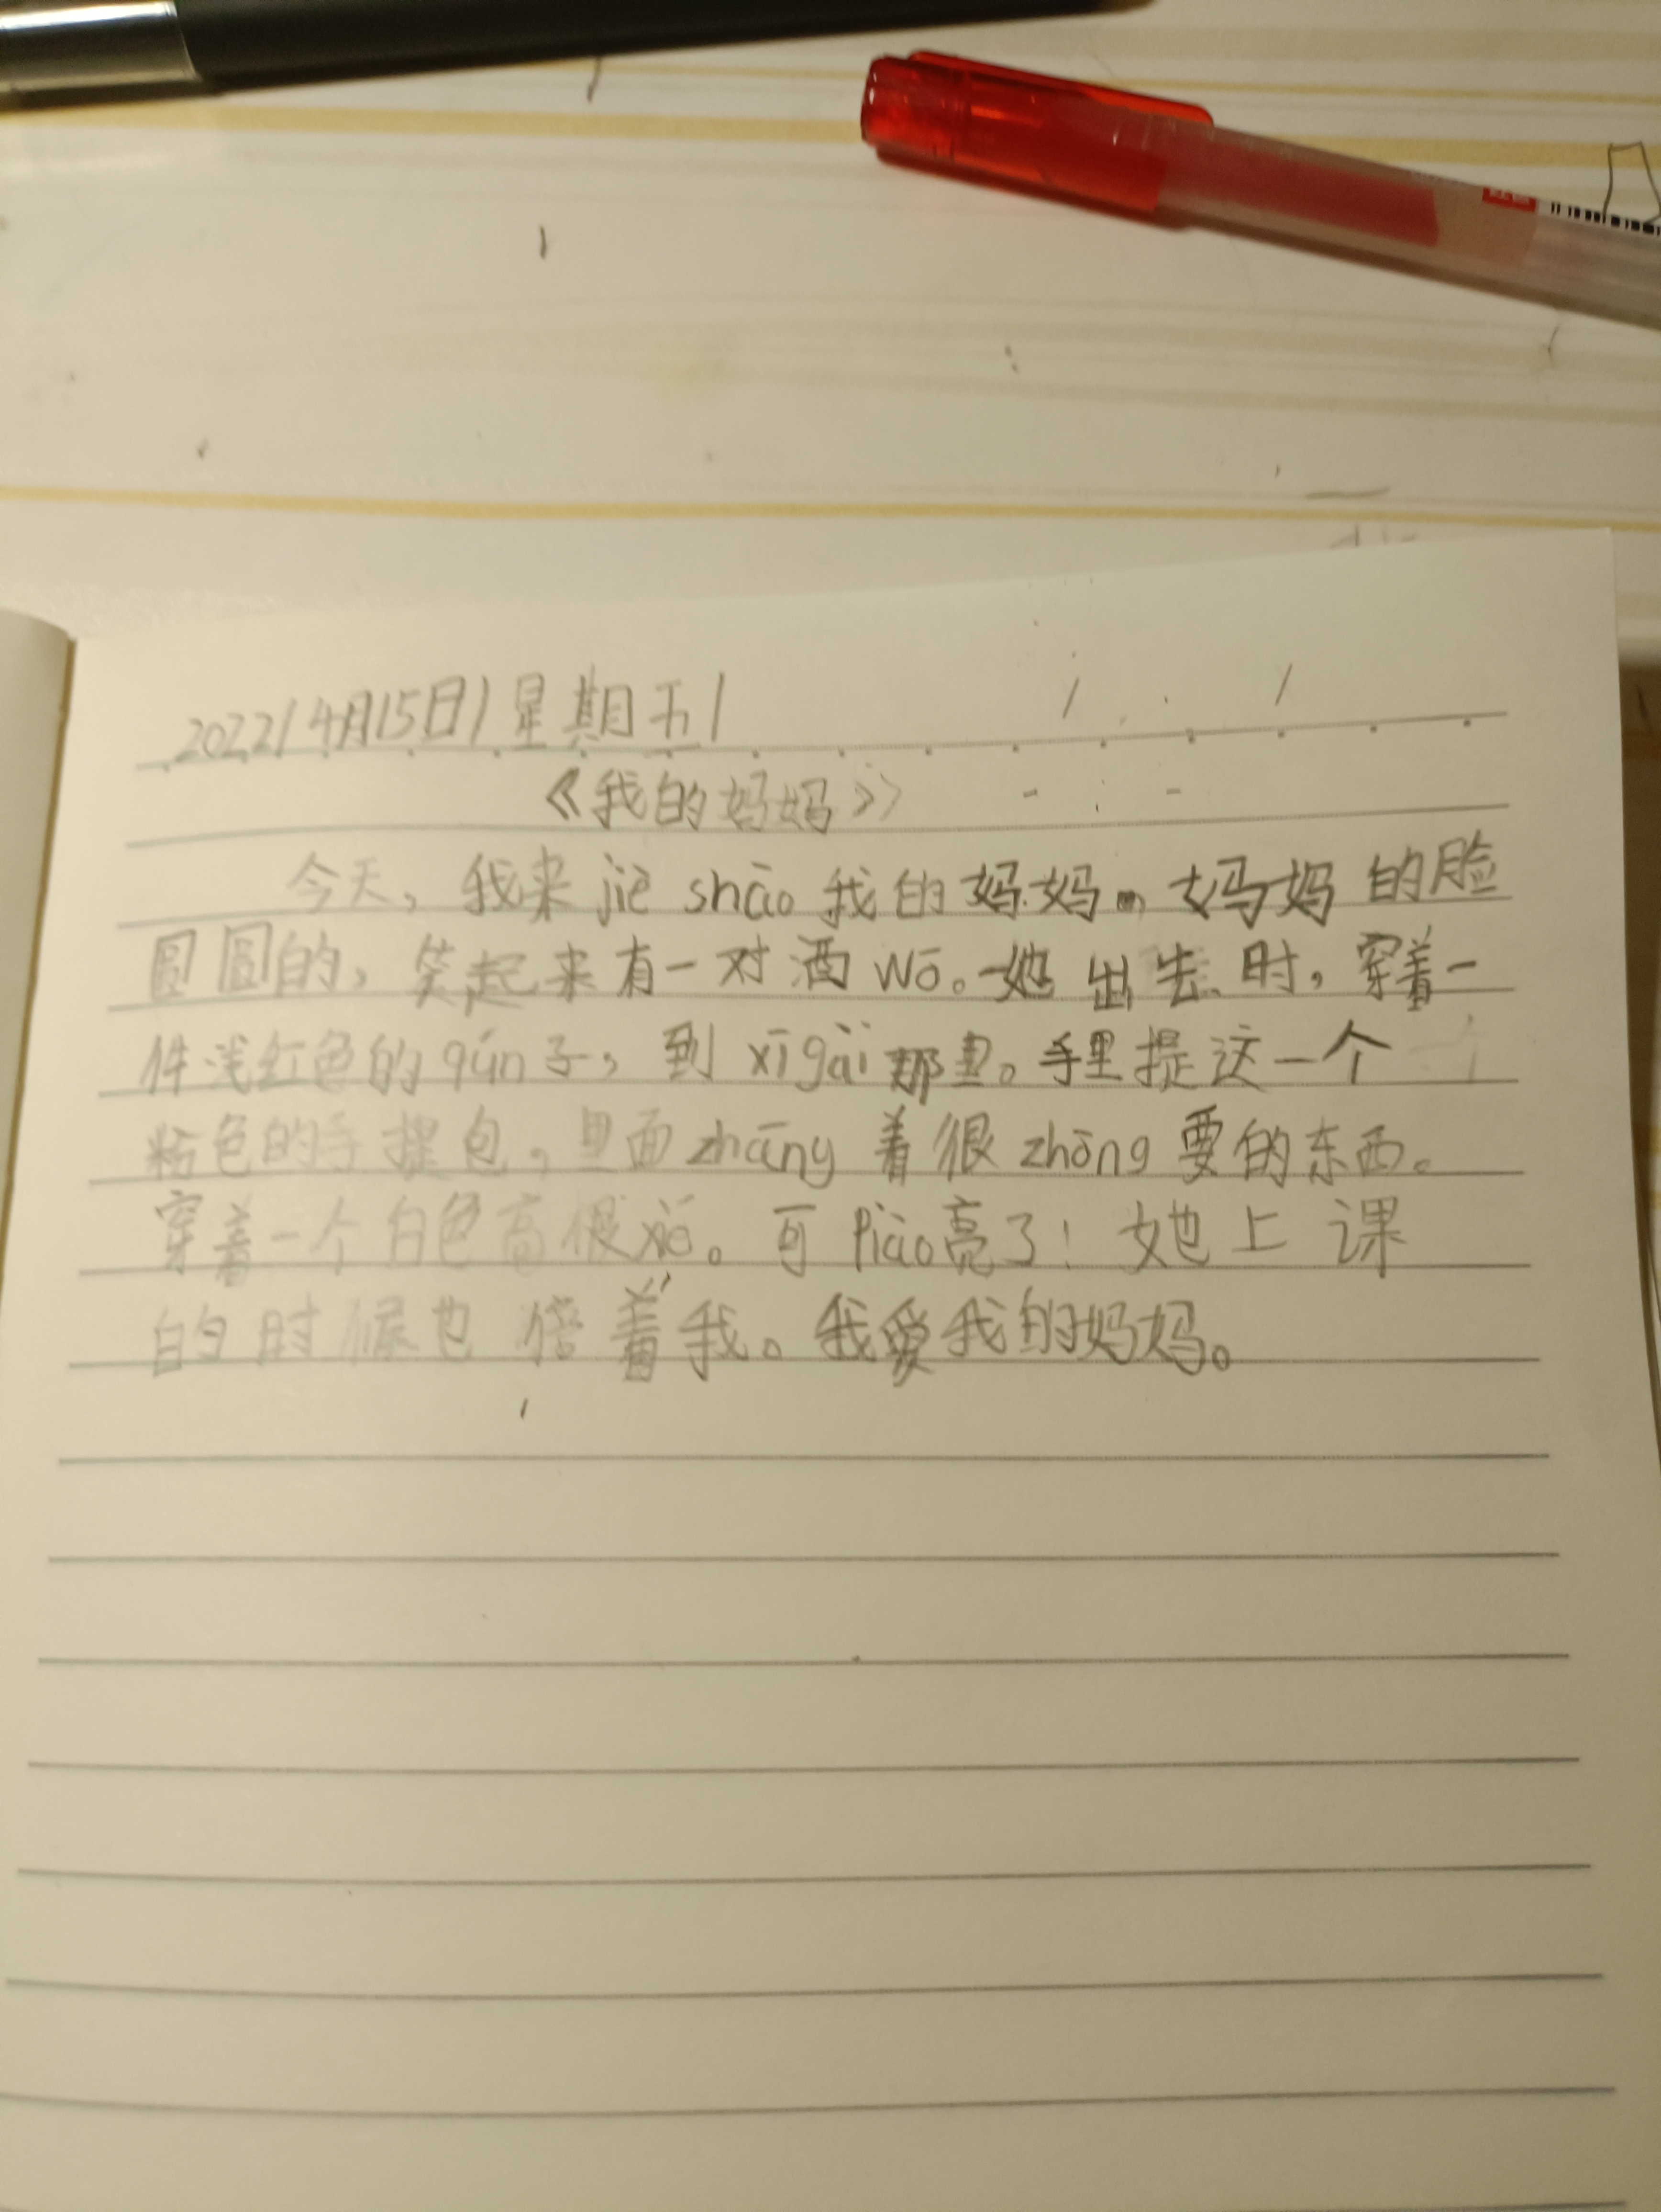 2022/4月15日/星期五/
《我的妈妈》
今天，我来jiè shāo我的妈妈。妈妈的脸
圆圆的，笑起来有一对酒wō。她出去时，穿着一
件浅红色的qún子，到xī gài那里。手里提这一个
粘色的手提包，里面zhāng着很zhōng要的东西。
穿着一个白色高很xié。可piào亮了！她上课
的时候也陪着我。我爱我的妈妈。